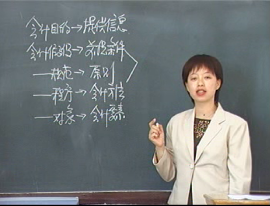 会计目的→提供信息
会计假设→前提条件
—规范→原则
—程方→会计方法
—对象→会计要素